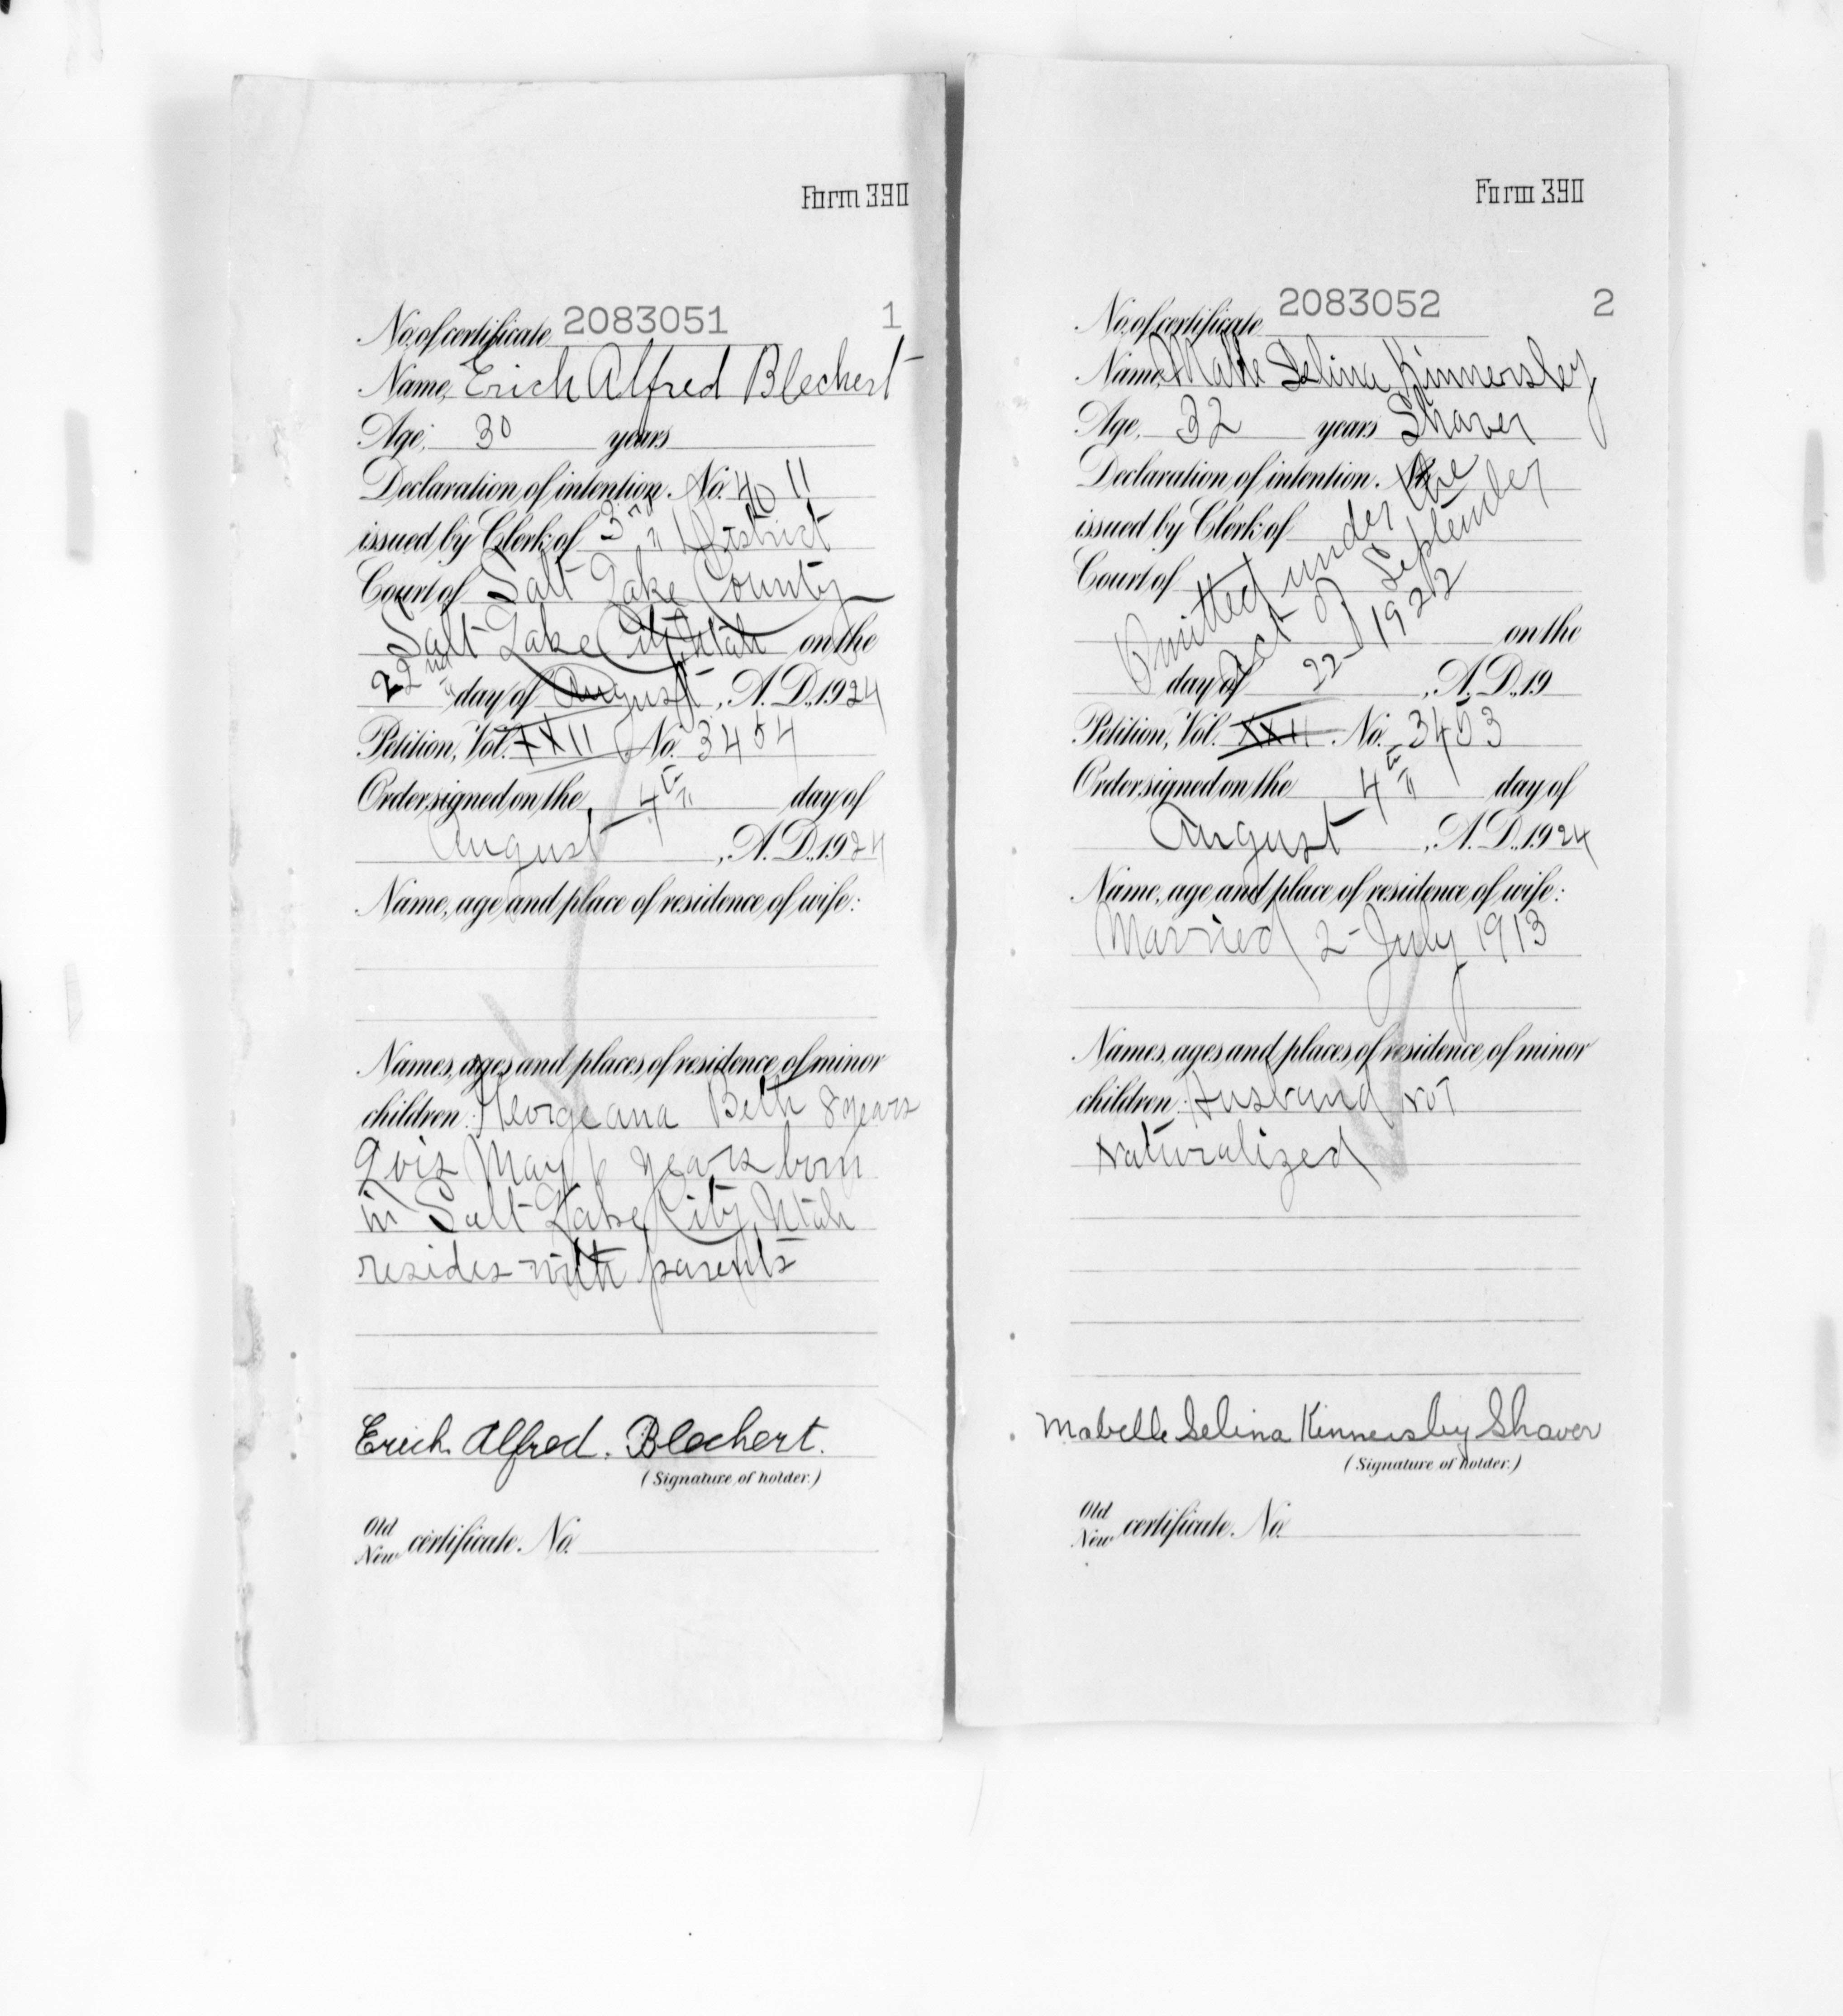 Form 390
No. of certificate 2083051 1
Name, Erich Alfred Blechert
Age, 30 years
Declaration of intention. No. 4011
issued by Clerk of 3rd District
Court of Salt Lake County
Salt Lake City, Utah on the
22nd day of August, A. D., 1924
Petition, Vol. XXII No. 3454
Order signed on the 4th day of
August, A. D., 1924
Name, age and place of residence of wife:
Names, ages and places of residence of minor
children: Georgeana Beth 8 years
Lois May 6 years born
in Salt Lake City Utah
resides with parents
Erich Alfred. Blechert.
(Signature of holder.)
Old
New certificate. No.
Form 390
No. of certificate 2083052 2
Name, Selina Kinnersley
Age, 32 years Shaver
Declaration of intention. No.
issued by Clerk of
Court of
Omitted under the
Act of September
22-1922
on the
day of , A. D., 19
Petition, Vol. XXII No. 3453
Order signed on the 4th day of
August, A. D., 1924
Name, age and place of residence of wife:
Married 2-July 1913
Names, ages and places of residence of minor
children: Husband not
naturalized
Mabelle Selina Kinnersley Shaver
(Signature of holder.)
Old
New certificate. No.